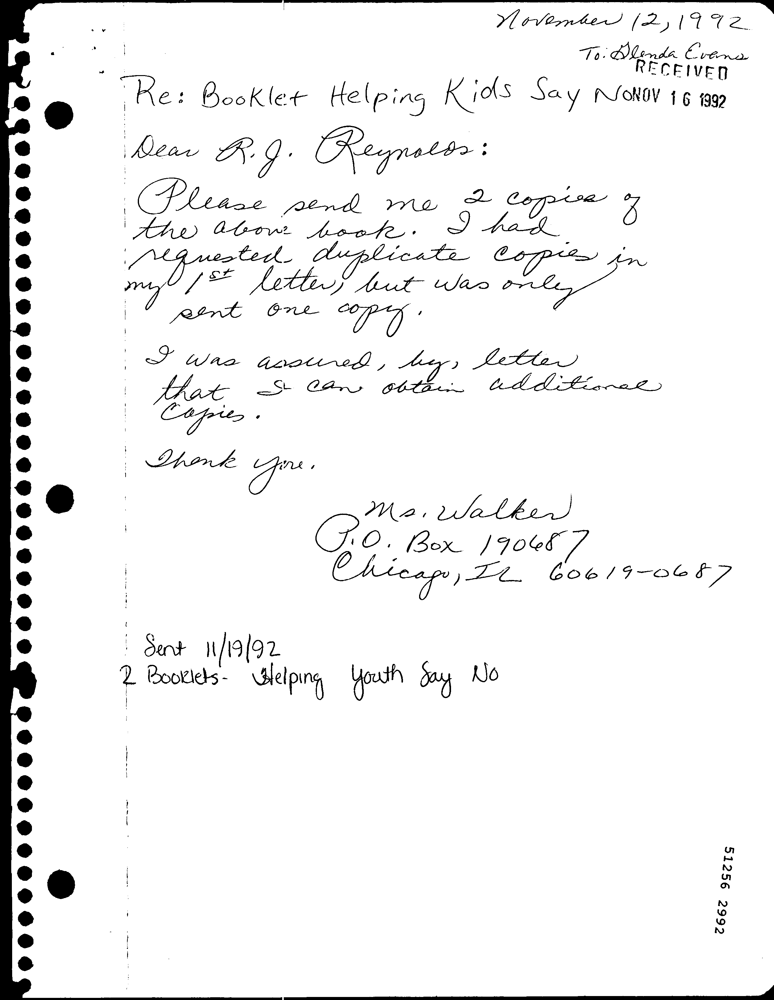 November 12, 1992
To: Glenda Evans
RECEIVED
NOV 16 1992
Re: Booklet Helping Kids Say No
Dear R.J. Reynolds:
Please send me 2 copies of
the above book. I had
requested duplicate copies in
my 1st letter, but was only
sent one copy.
I was assured, by, letter
that I can obtain additional
copies.
Thank you.
Ms. Walker
P.O. Box 190687
Chicago, IL 60619-0687
Sent 11/19/92
2 Booklets - Helping Youth Say No
51256 2992